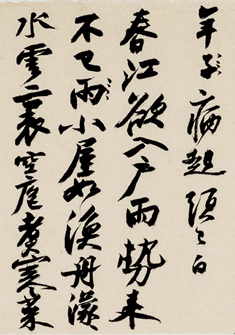 年子病起須已白
春江欲入戶雨勢來
不已雨小屋如漁舟濛
水雲裏空庖煮寒菜